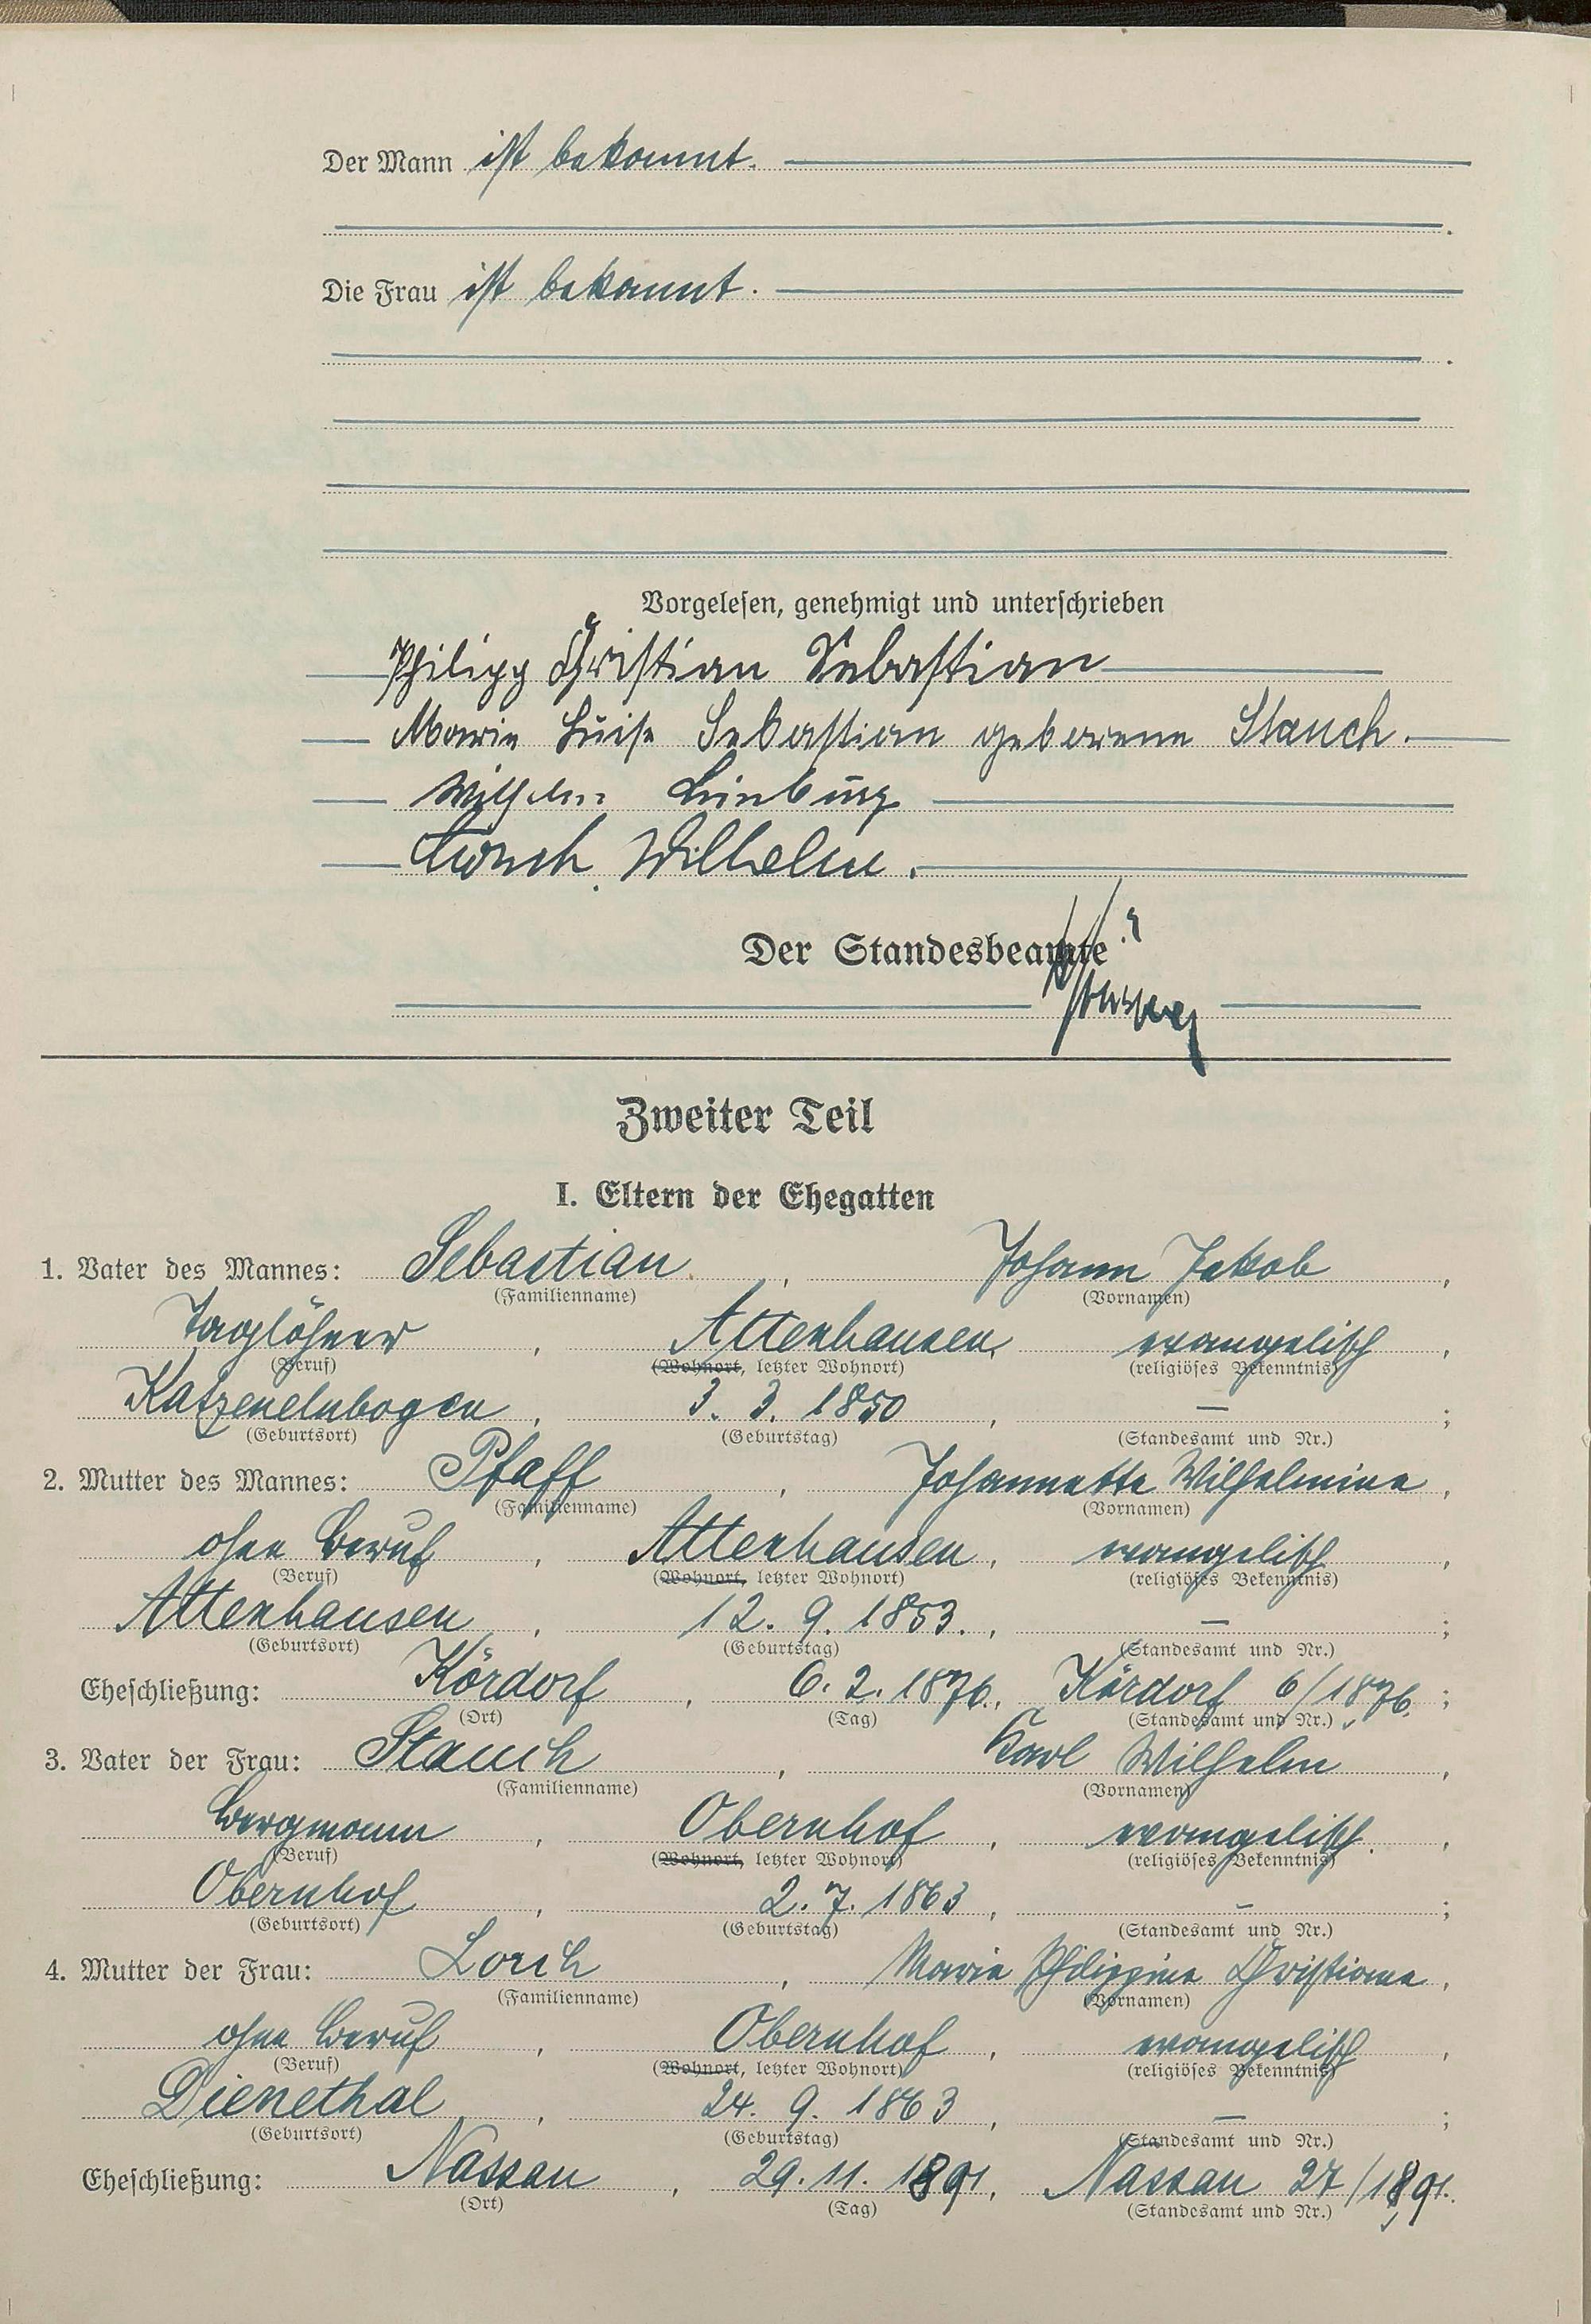 Der Mann ist bekannt.
Die Frau ist bekannt.
Vorgelesen, genehmigt und unterschrieben
Philipp Christian Sebastian
Marie Luise Sebastian geborene Stauch.
Wilhelm
Wilhelm.
Der Standesbeamte
Zweiter Teil
I. Eltern der Ehegatten
1. Vater des Mannes: Sebastian, Johann Jakob,
(Familienname) (Vornamen)
Taglöhner, Attenhausen, evangelisch,
(Beruf) (Wohnort, letzter Wohnort) (religiöses Bekenntnis)
Katzenelnbogen, 3. 3. 1850, — ;
(Geburtsort) (Geburtstag) (Standesamt und Nr.)
2. Mutter des Mannes: Pfaff, Johannette Wilhelmine,
(Familienname) (Vornamen)
ohne Beruf, Attenhausen, evangelisch,
(Beruf) (Wohnort, letzter Wohnort) (religiöses Bekenntnis)
Attenhausen, 12. 9. 1853., — ;
(Geburtsort) (Geburtstag) (Standesamt und Nr.)
Eheschließung: Kördorf, 6. 2. 1876., Kördorf 6/1876. ;
(Ort) (Tag) (Standesamt und Nr.)
3. Vater der Frau: Stauch, Karl Wilhelm,
(Familienname) (Vornamen)
Bergmann, Obernhof, evangelisch.,
(Beruf) (Wohnort, letzter Wohnort) (religiöses Bekenntnis)
Obernhof, 2. 7. 1863, — ;
(Geburtsort) (Geburtstag) (Standesamt und Nr.)
4. Mutter der Frau: Lorch, Marie Philippine Christiane,
(Familienname) (Vornamen)
ohne Beruf, Obernhof, evangelisch,
(Beruf) (Wohnort, letzter Wohnort) (religiöses Bekenntnis)
Dienethal, 24. 9. 1863, — ;
(Geburtsort) (Geburtstag) (Standesamt und Nr.)
Eheschließung: Nassau, 29. 11. 1891, Nassau 27/1891.
(Ort) (Tag) (Standesamt und Nr.)